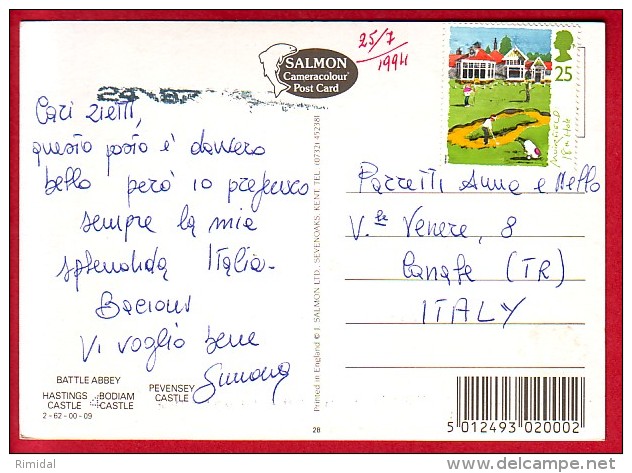 Cari zietti,
questo posto è davvero
bello però io preferisco
sempre la mia
splendida Italia.
Bacioni
Vi voglio bene
Simona
BATTLE ABBEY
HASTINGS CASTLE
BODIAM CASTLE
PEVENSEY CASTLE
2-62-00-09
25/7
1994
SALMON
Cameracolour
Post Card
Printed in England © J. SALMON LTD., SEVENOAKS, KENT. TEL. (0732) 452381
28
25
MUIRFIELD
18th Hole
Anna e
V.le Venere, 8
(TR)
ITALY
5 012493 020002
Rimidal
www.delcampe.net